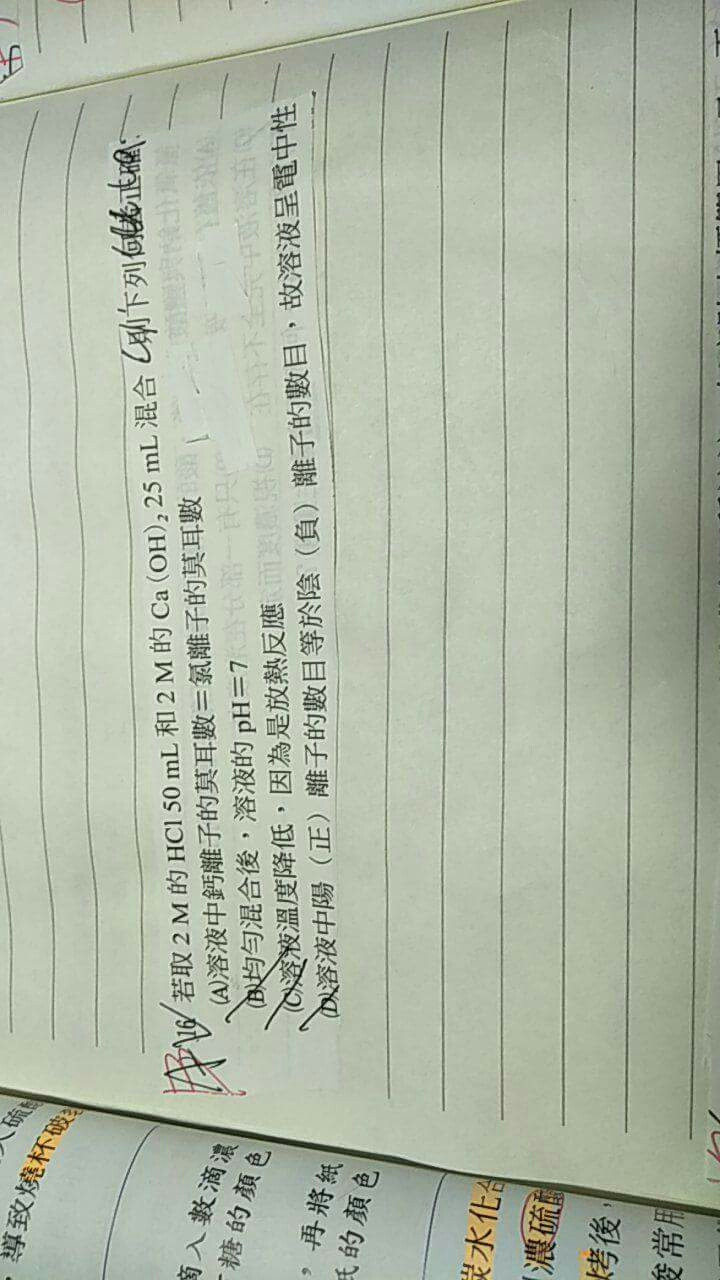 16 若取 2 M 的 HCl 50 mL 和 2 M 的 Ca(OH)₂ 25 mL 混合,則下列何者正確
(A)溶液中鈣離子的莫耳數=氯離子的莫耳數
(B)均勻混合後,溶液的 pH=7
(C)溶液溫度降低,因為是放熱反應
(D)溶液中陽(正)離子的數目等於陰(負)離子的數目,故溶液呈電中性
導致燒杯破
滴入數滴濃
糖的顏色
,再將紙
紙的顏色
炭水化合
濃硫酸
烤後,
常用